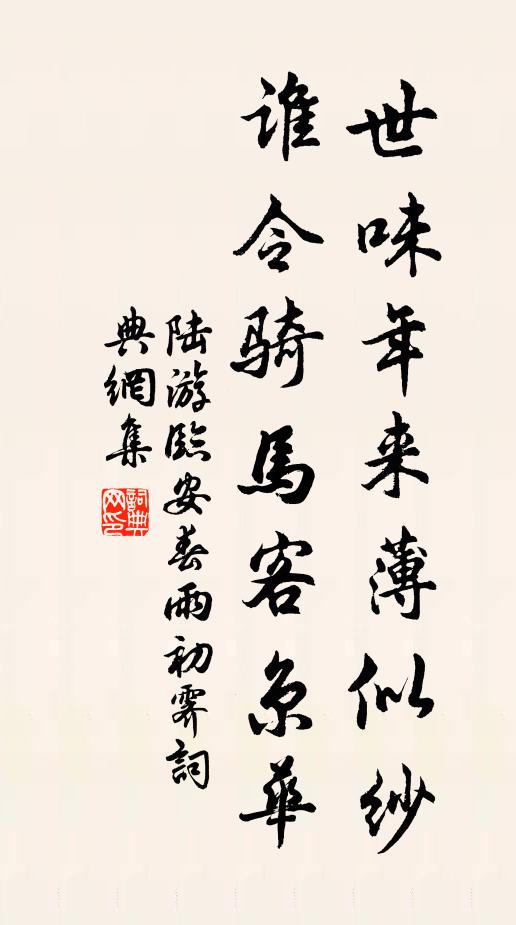 世味年来薄似纱
谁令骑馬客京華
陆游臨安春雨初霽詞
典網集
詞典网印